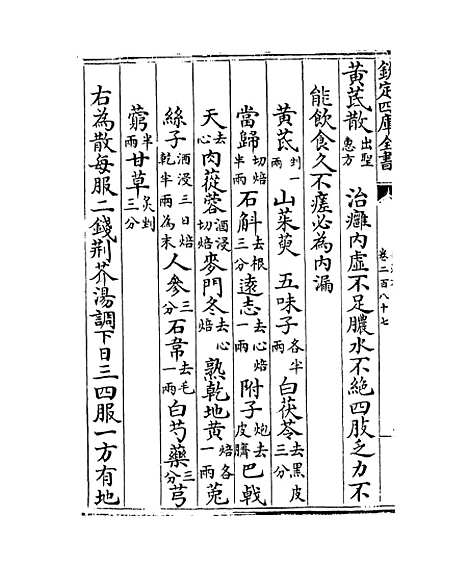 欽定四庫全書 卷二百八十七
黃芪散出聖惠方 治癰內虛不足膿水不絶四肢乏力不
能飲食久不瘥必為內漏
黃芪剉一兩 山茱萸 五味子各半兩 白茯苓去黑皮三分
當歸切焙半兩 石斛去根三分 遠志去心焙一兩 附子炮去皮臍 巴戟
天去心 肉蓯蓉酒浸切焙 麥門冬去心焙 熟乾地黃焙各一兩 菟
絲子酒浸三日焙乾半兩為末 人參三分 石韋去毛一兩 白芍藥三分 芎
藭半兩 甘草炙剉三分
右為散每服二錢荆芥湯調下日三四服一方有地